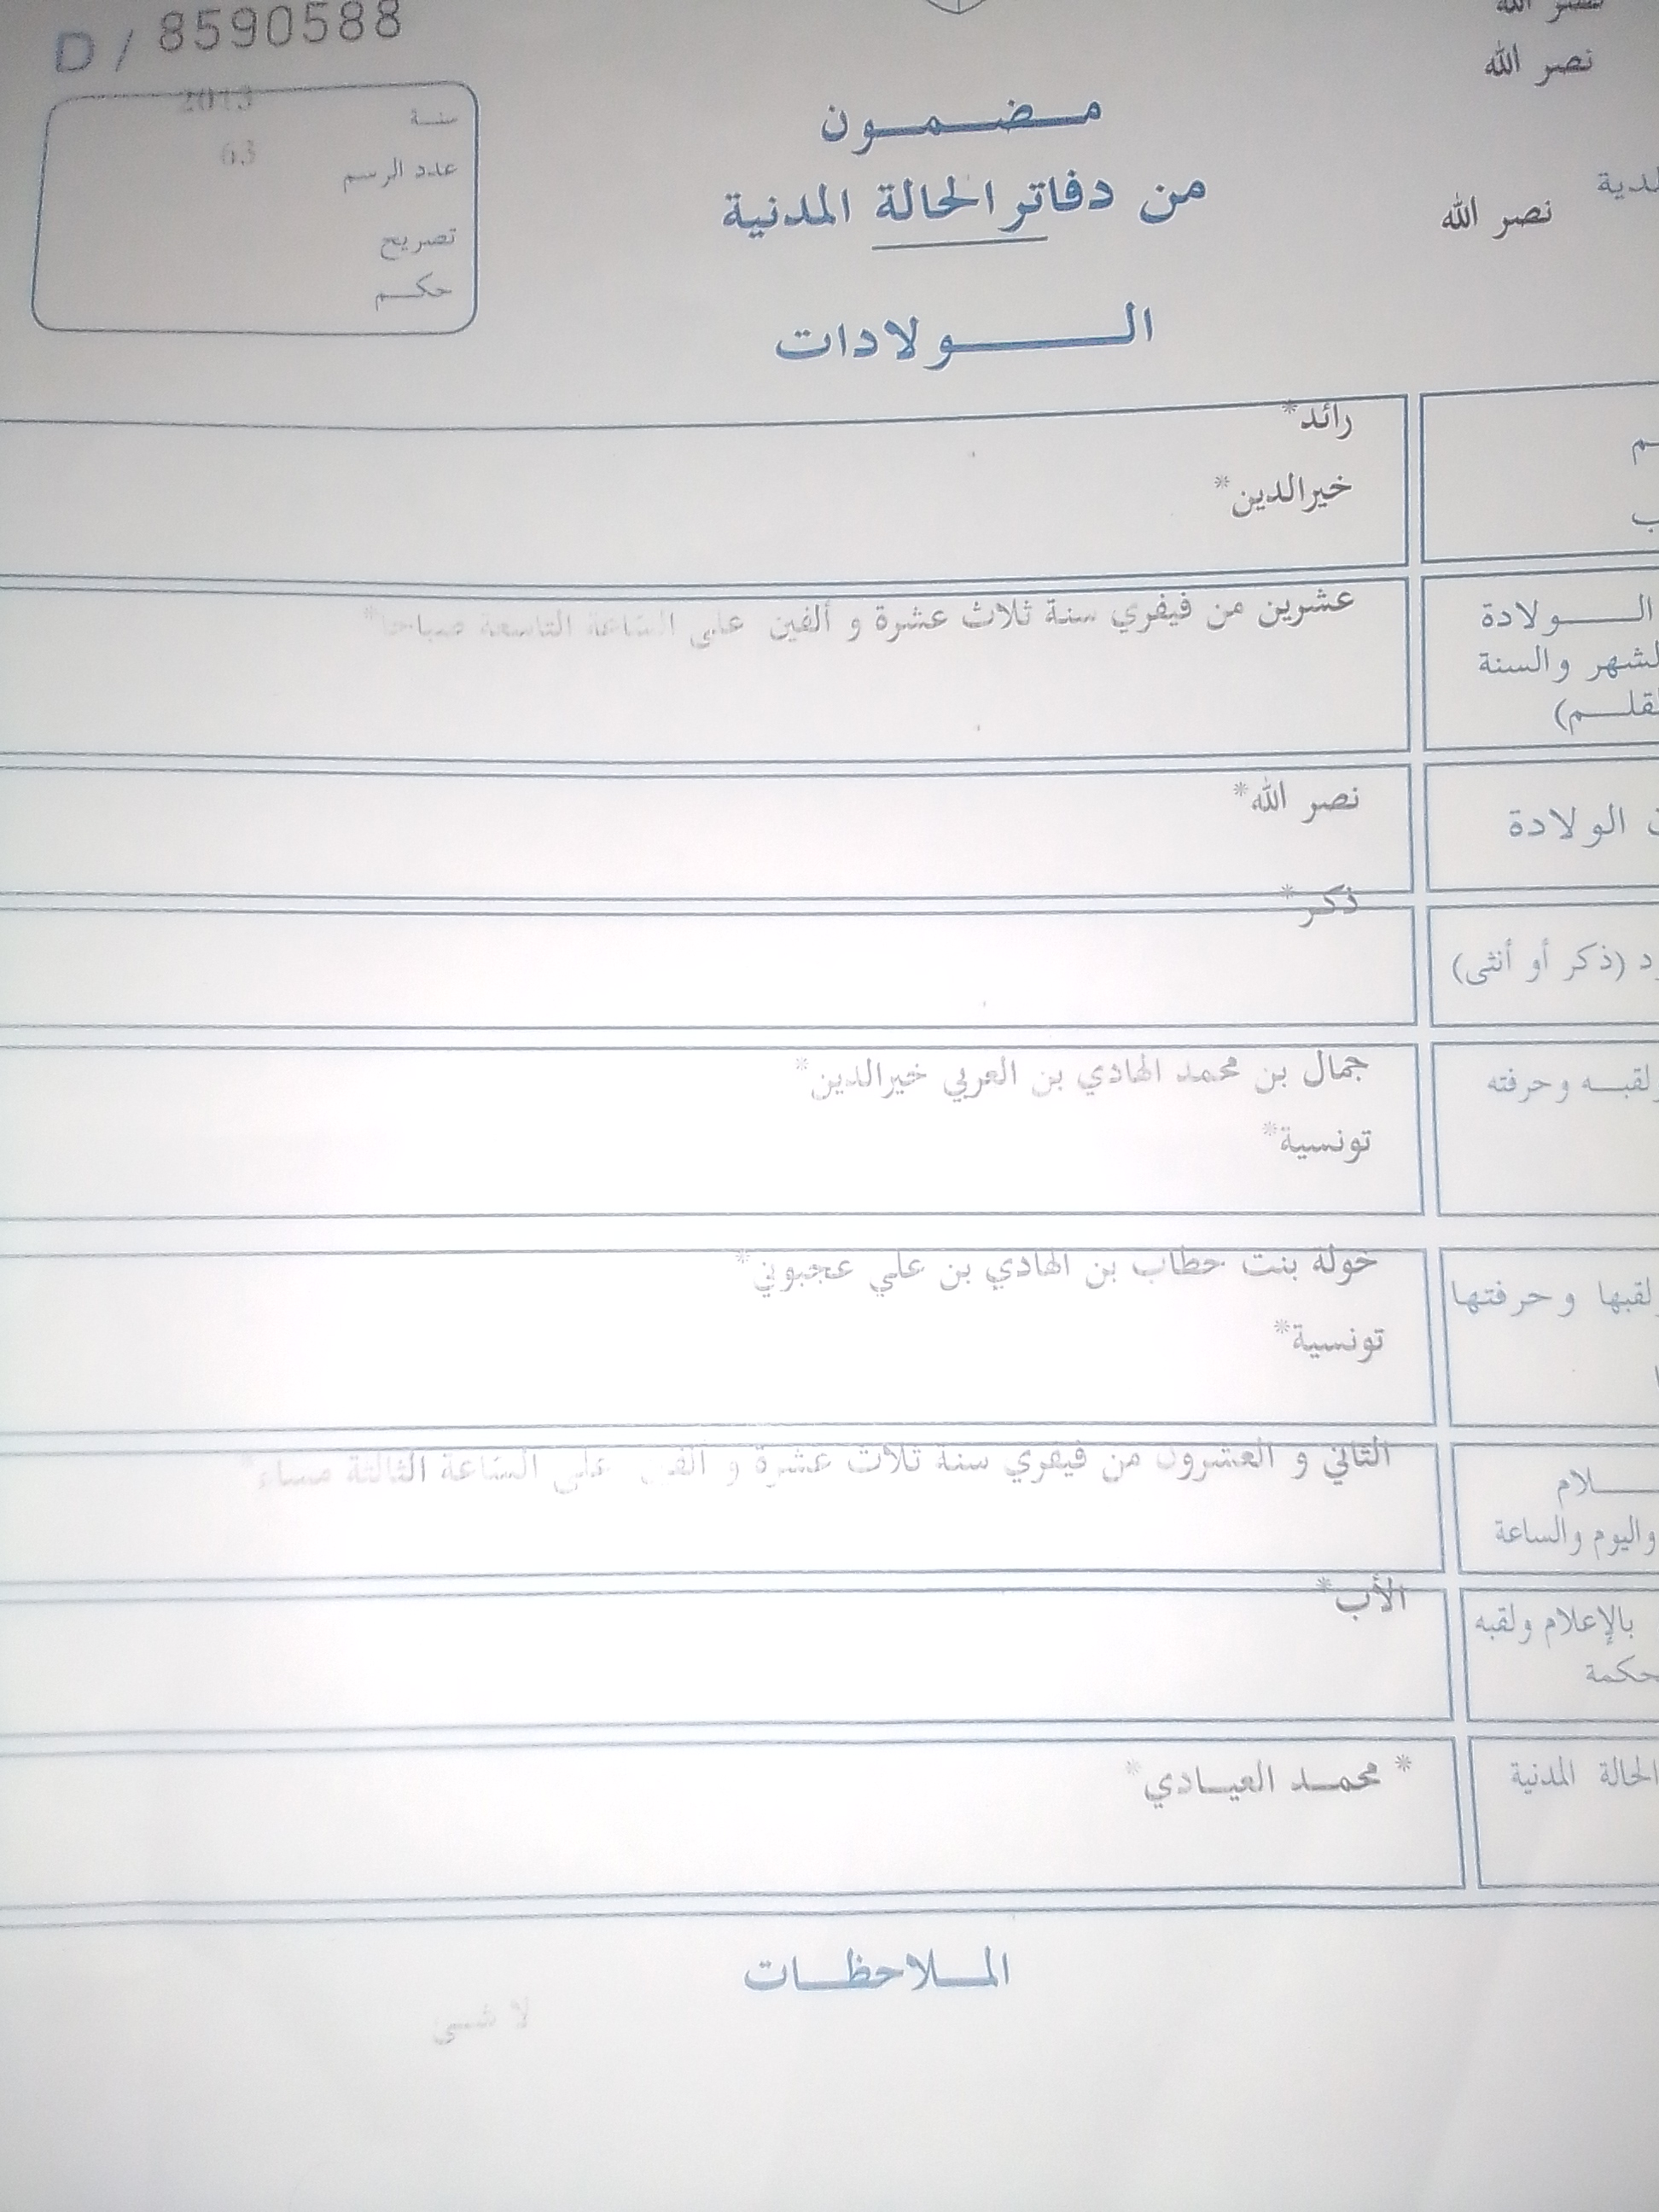 D / 8590588
نصر الله
نصر الله
نصر الله
سنة 2013
عدد الرسم 63
تصريح
حكم
مضمون
من دفاتر الحالة المدنية
الولادات
رائد*
خيرالدين*
الولادة
والسنة
عشرين من فيفري سنة ثلاث عشرة و ألفين على الساعة التاسعة صباحا*
الولادة
نصر الله*
(ذكر أو أنثى)
ذكر*
وحرفته
جمال بن محمد الهادي بن العربي خيرالدين*
تونسية*
وحرفتها
خوله بنت حطاب بن الهادي بن علي عجبوني*
تونسية*
واليوم والساعة
الثاني و العشرون من فيفري سنة ثلاث عشرة و ألفين على الساعة الثالثة مساء*
بالإعلام ولقبه
الأب*
الحالة المدنية
* محمد العيادي*
الملاحظات
لا شيئ